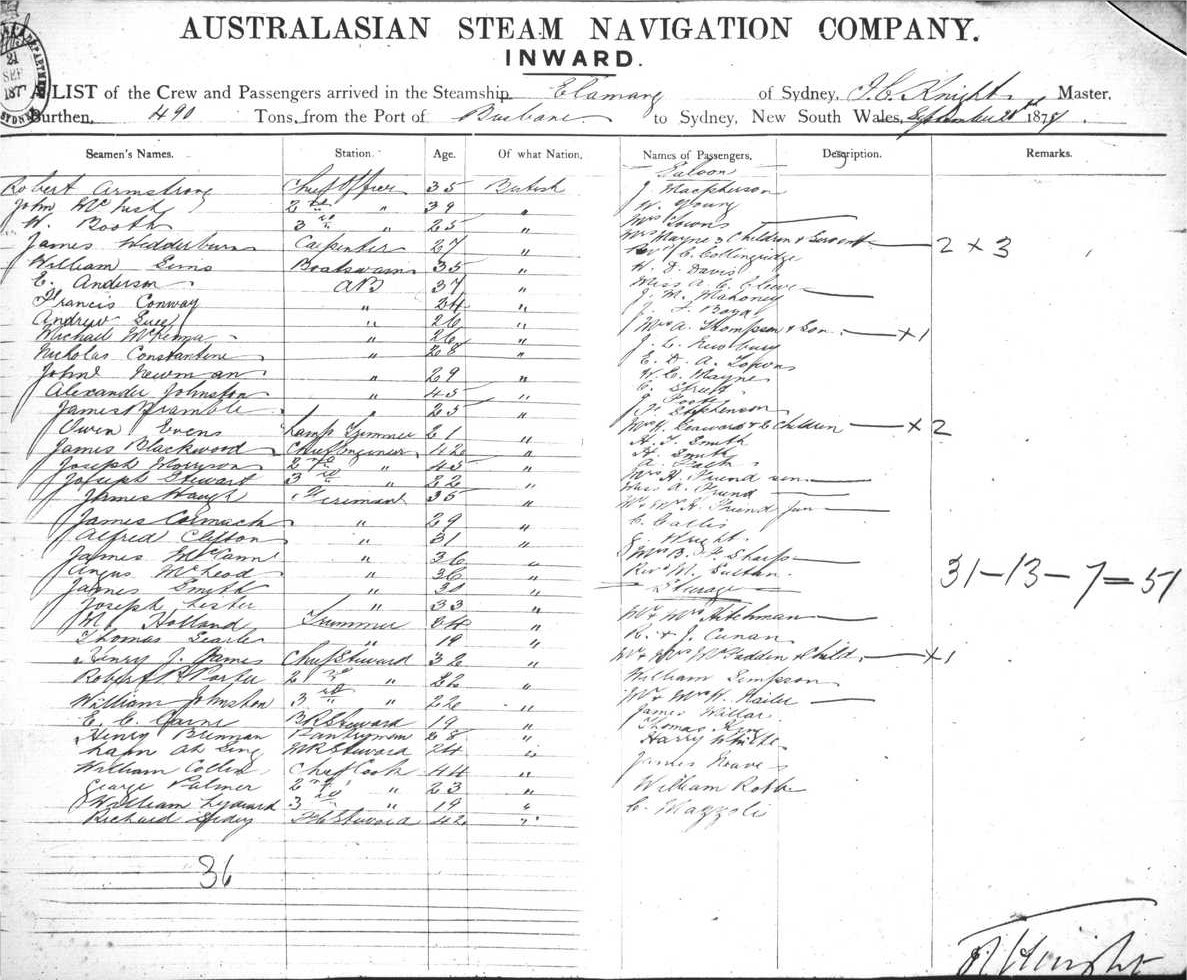 AUSTRALASIAN STEAM NAVIGATION COMPANY.
INWARD.
A LIST of the Crew and Passengers arrived in the Steamship Elamang of Sydney, T. C. Knight, Master,
Burthen, 490 Tons, from the Port of Brisbane to Sydney, New South Wales, September 1877
21 SEP 187 DEPARTMENT SYDNEY
Seamen's Names. Station. Age. Of what Nation. Names of Passengers. Description. Remarks.
Saloon
Robert Armstrong Chief Officer 35 British J. Macpherson
John 2nd " 39 " W. Young
W. Booth 3rd " 25 " Mrs Towns
James Wedderburn Carpenter 27 " Mrs Mayne 2 Children & Servant 2 x 3
Revd C. Collingridge
William Sims Boatswain 35 " W. D. Davis
E. Anderson AB 37 " Miss A. C.
J. M. Mahoney
Francis Conway " 34 " J. T. Boyd
Andrew " 26 " Mrs A. Thompson & Son x 1
Michael McKenna " 26 " J. C.
Nicholas Constantine " 28 " E. D. A. Towns
John Newman " 29 " W. C. Mayne
Alexander Johnston " 45 " C.
James Bramble " 25 " J.
Stephenson
Owen Evens Lamp Trimmer 21 " Mrs Seaward & 2 Children x 2
James Blackwood Chief Engineer 42 " H. T. Smith
Joseph Morryson 2nd " 45 " H. Smith
A.
Joseph Stewart 3rd " 22 " Mrs H. Friend sen
James Haugh Fireman 35 " Miss A. Friend
Mr & Mrs H. Friend jun
James Cormack " 29 " C.
Alfred Clifton " 31 " G. Wright
James McCann " 36 " Mrs B. F. Sharp
Angus McLeod " 36 " Revd M.
James Smith " 30 " Steerage 31 - 13 - 7 = 51
Joseph Lester " 33 " Mr & Mrs Hitchman
M. Holland Trimmer 24 " R. & J. Cunan
Thomas Searle " 19 "
Henry J. James Chief Steward 32 " Mr & Mrs McFadden & Child x 1
Robert R. Porter 2nd " 22 " William Simpson
William Johnston 3rd " 22 " Mr & Mrs H.
E. C. Carne BR Steward 19 " James Millar
Henry Brennan Pantryman 28 " Thomas
Ah Sing MR Steward 24 " Harry White
William Collin Chief Cook 44 " James Neaves
George Palmer 2nd " 23 " William
William 3rd " 19 " C. Mazzoli
Richard Steward 42 "
36
T. C. Knight